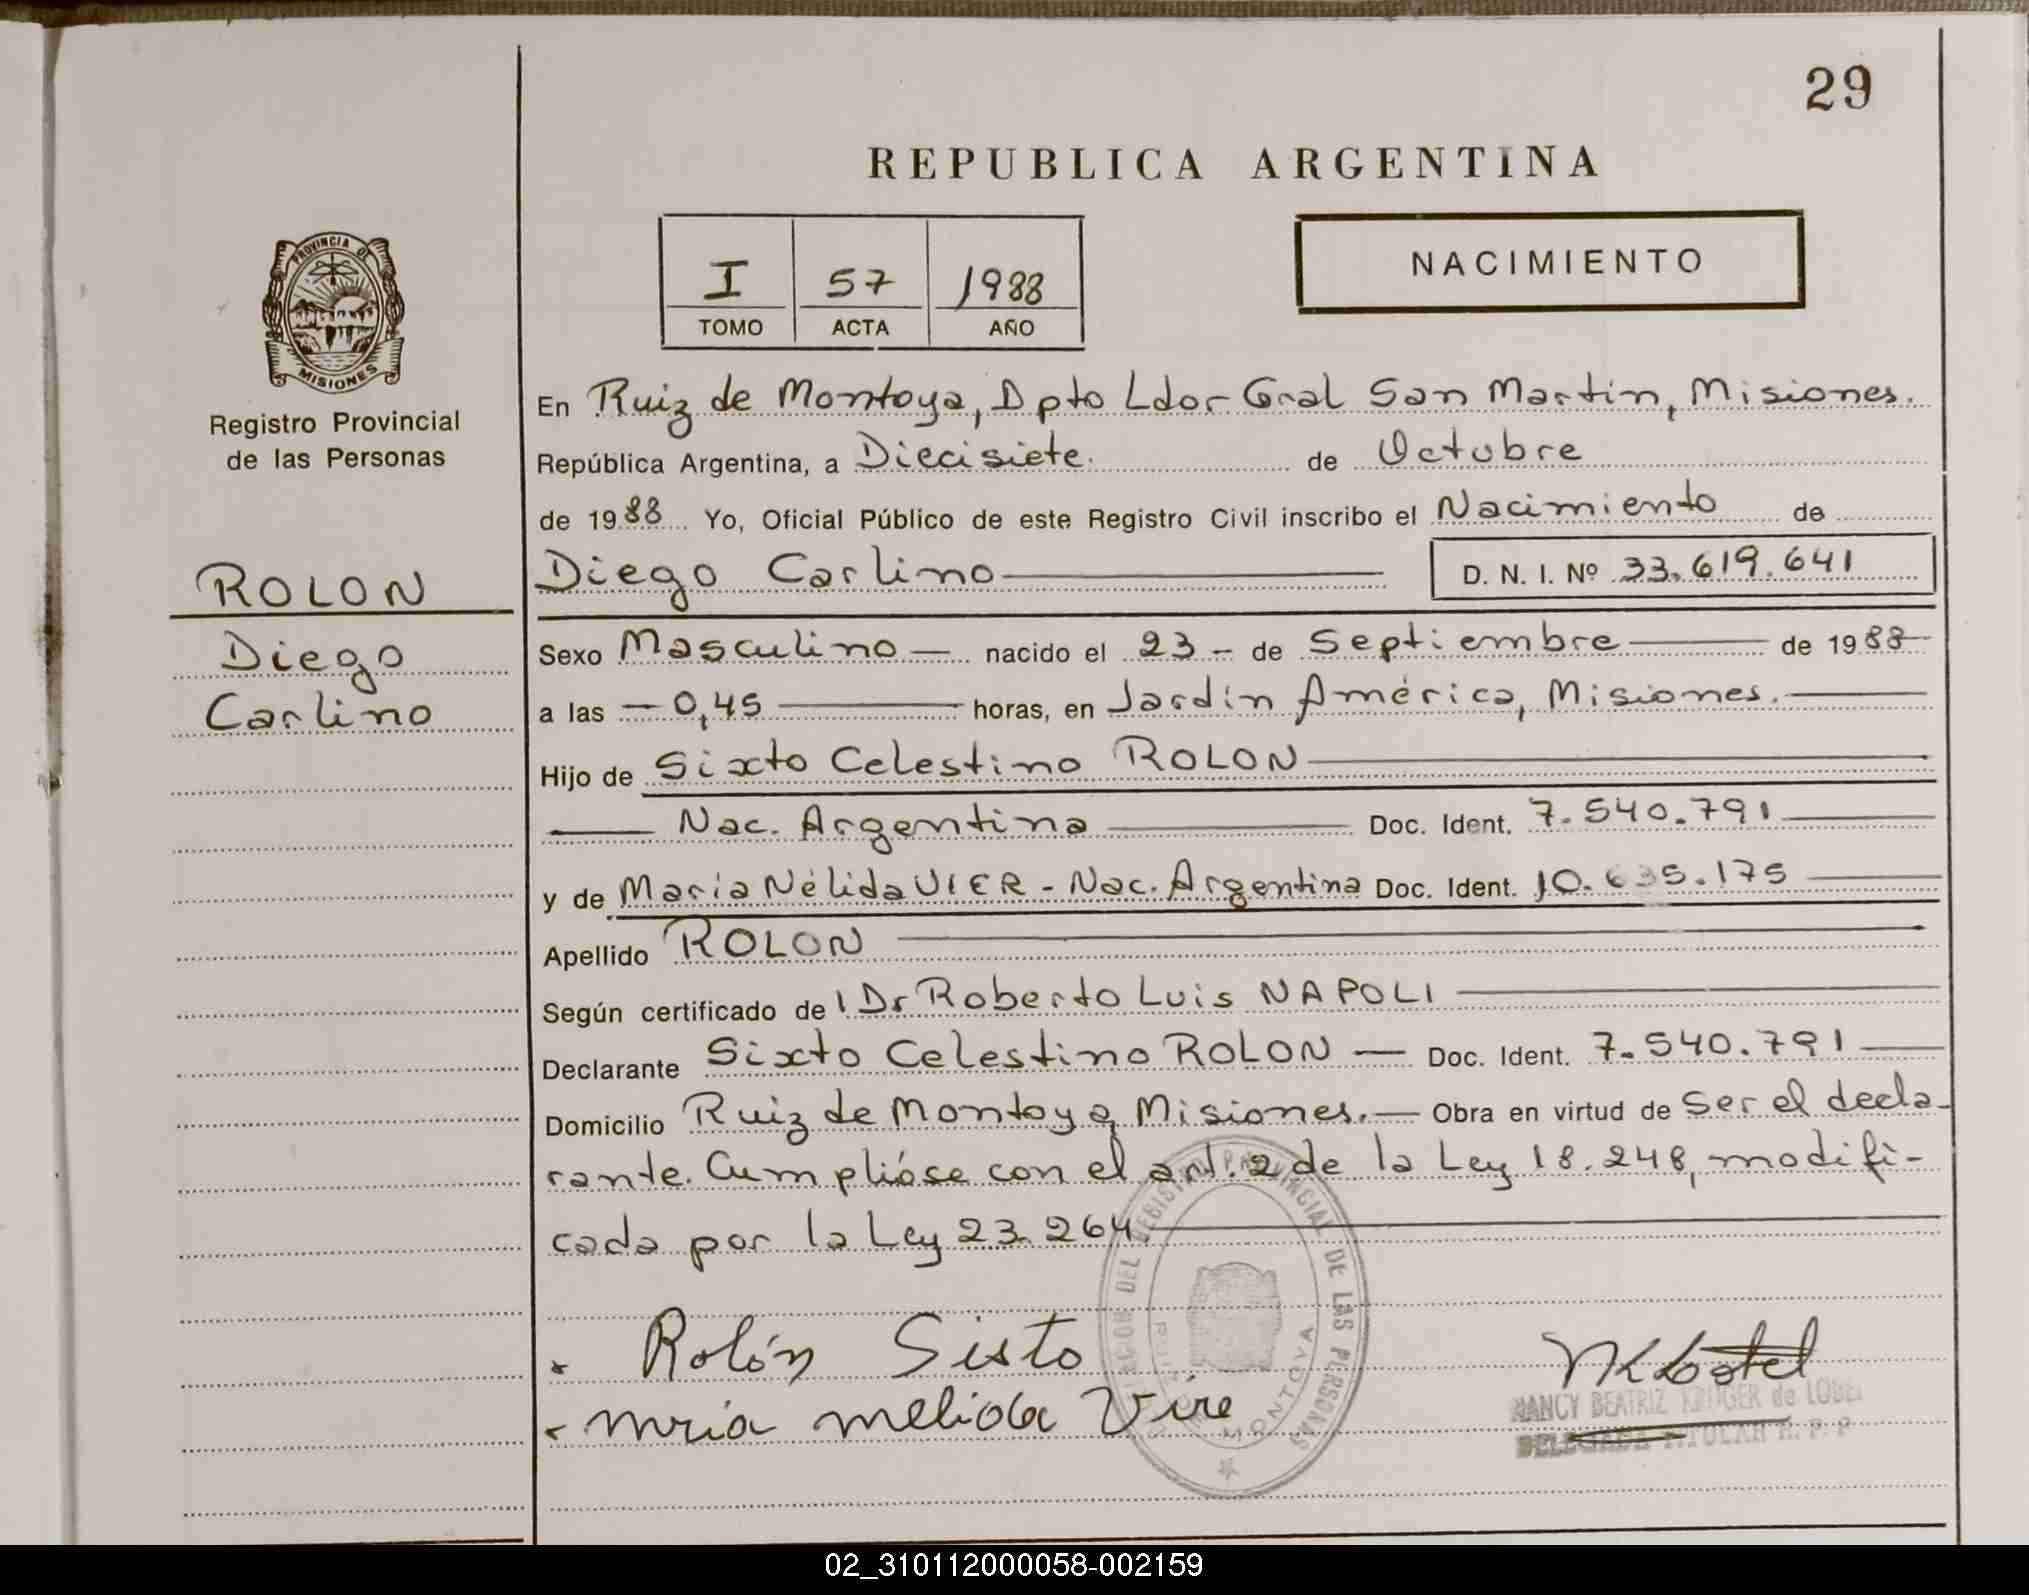 29
REPUBLICA ARGENTINA
PROVINCIA DE
MISIONES
Registro Provincial
de las Personas
I 57 1988
TOMO ACTA AÑO
NACIMIENTO
En Ruiz de Montoya, Dpto Ldor Gral San Martín, Misiones.
República Argentina, a Diecisiete. de Octubre
de 1988 Yo, Oficial Público de este Registro Civil inscribo el Nacimiento de
Diego Carlino D. N. I. Nº 33.619.641
ROLON
Diego
Carlino
Sexo Masculino — nacido el 23 - de Septiembre — de 1988
a las — 0,45 — horas, en Jardín América, Misiones. —
Hijo de Sixto Celestino ROLON —
— Nac. Argentina — Doc. Ident. 7.540.791 —
y de María Nélida VIER - Nac. Argentina Doc. Ident. 10.635.175 —
Apellido ROLON —
Según certificado de l Dr Roberto Luis NAPOLI —
Declarante Sixto Celestino ROLON — Doc. Ident. 7.540.791 —
Domicilio Ruiz de Montoya, Misiones. — Obra en virtud de Ser el decla-
rante. Cumplióse con el art. 2 de la Ley 18.248, modifi-
cada por la Ley 23.264. —
Rolón Sisto
mria melida Vire
DEL REGISTRO PROVINCIAL DE LAS PERSONAS
MONTOYA
NANCY BEATRIZ KRUGER de
DELEGADA TITULAR R. P. P
02_310112000058-002159